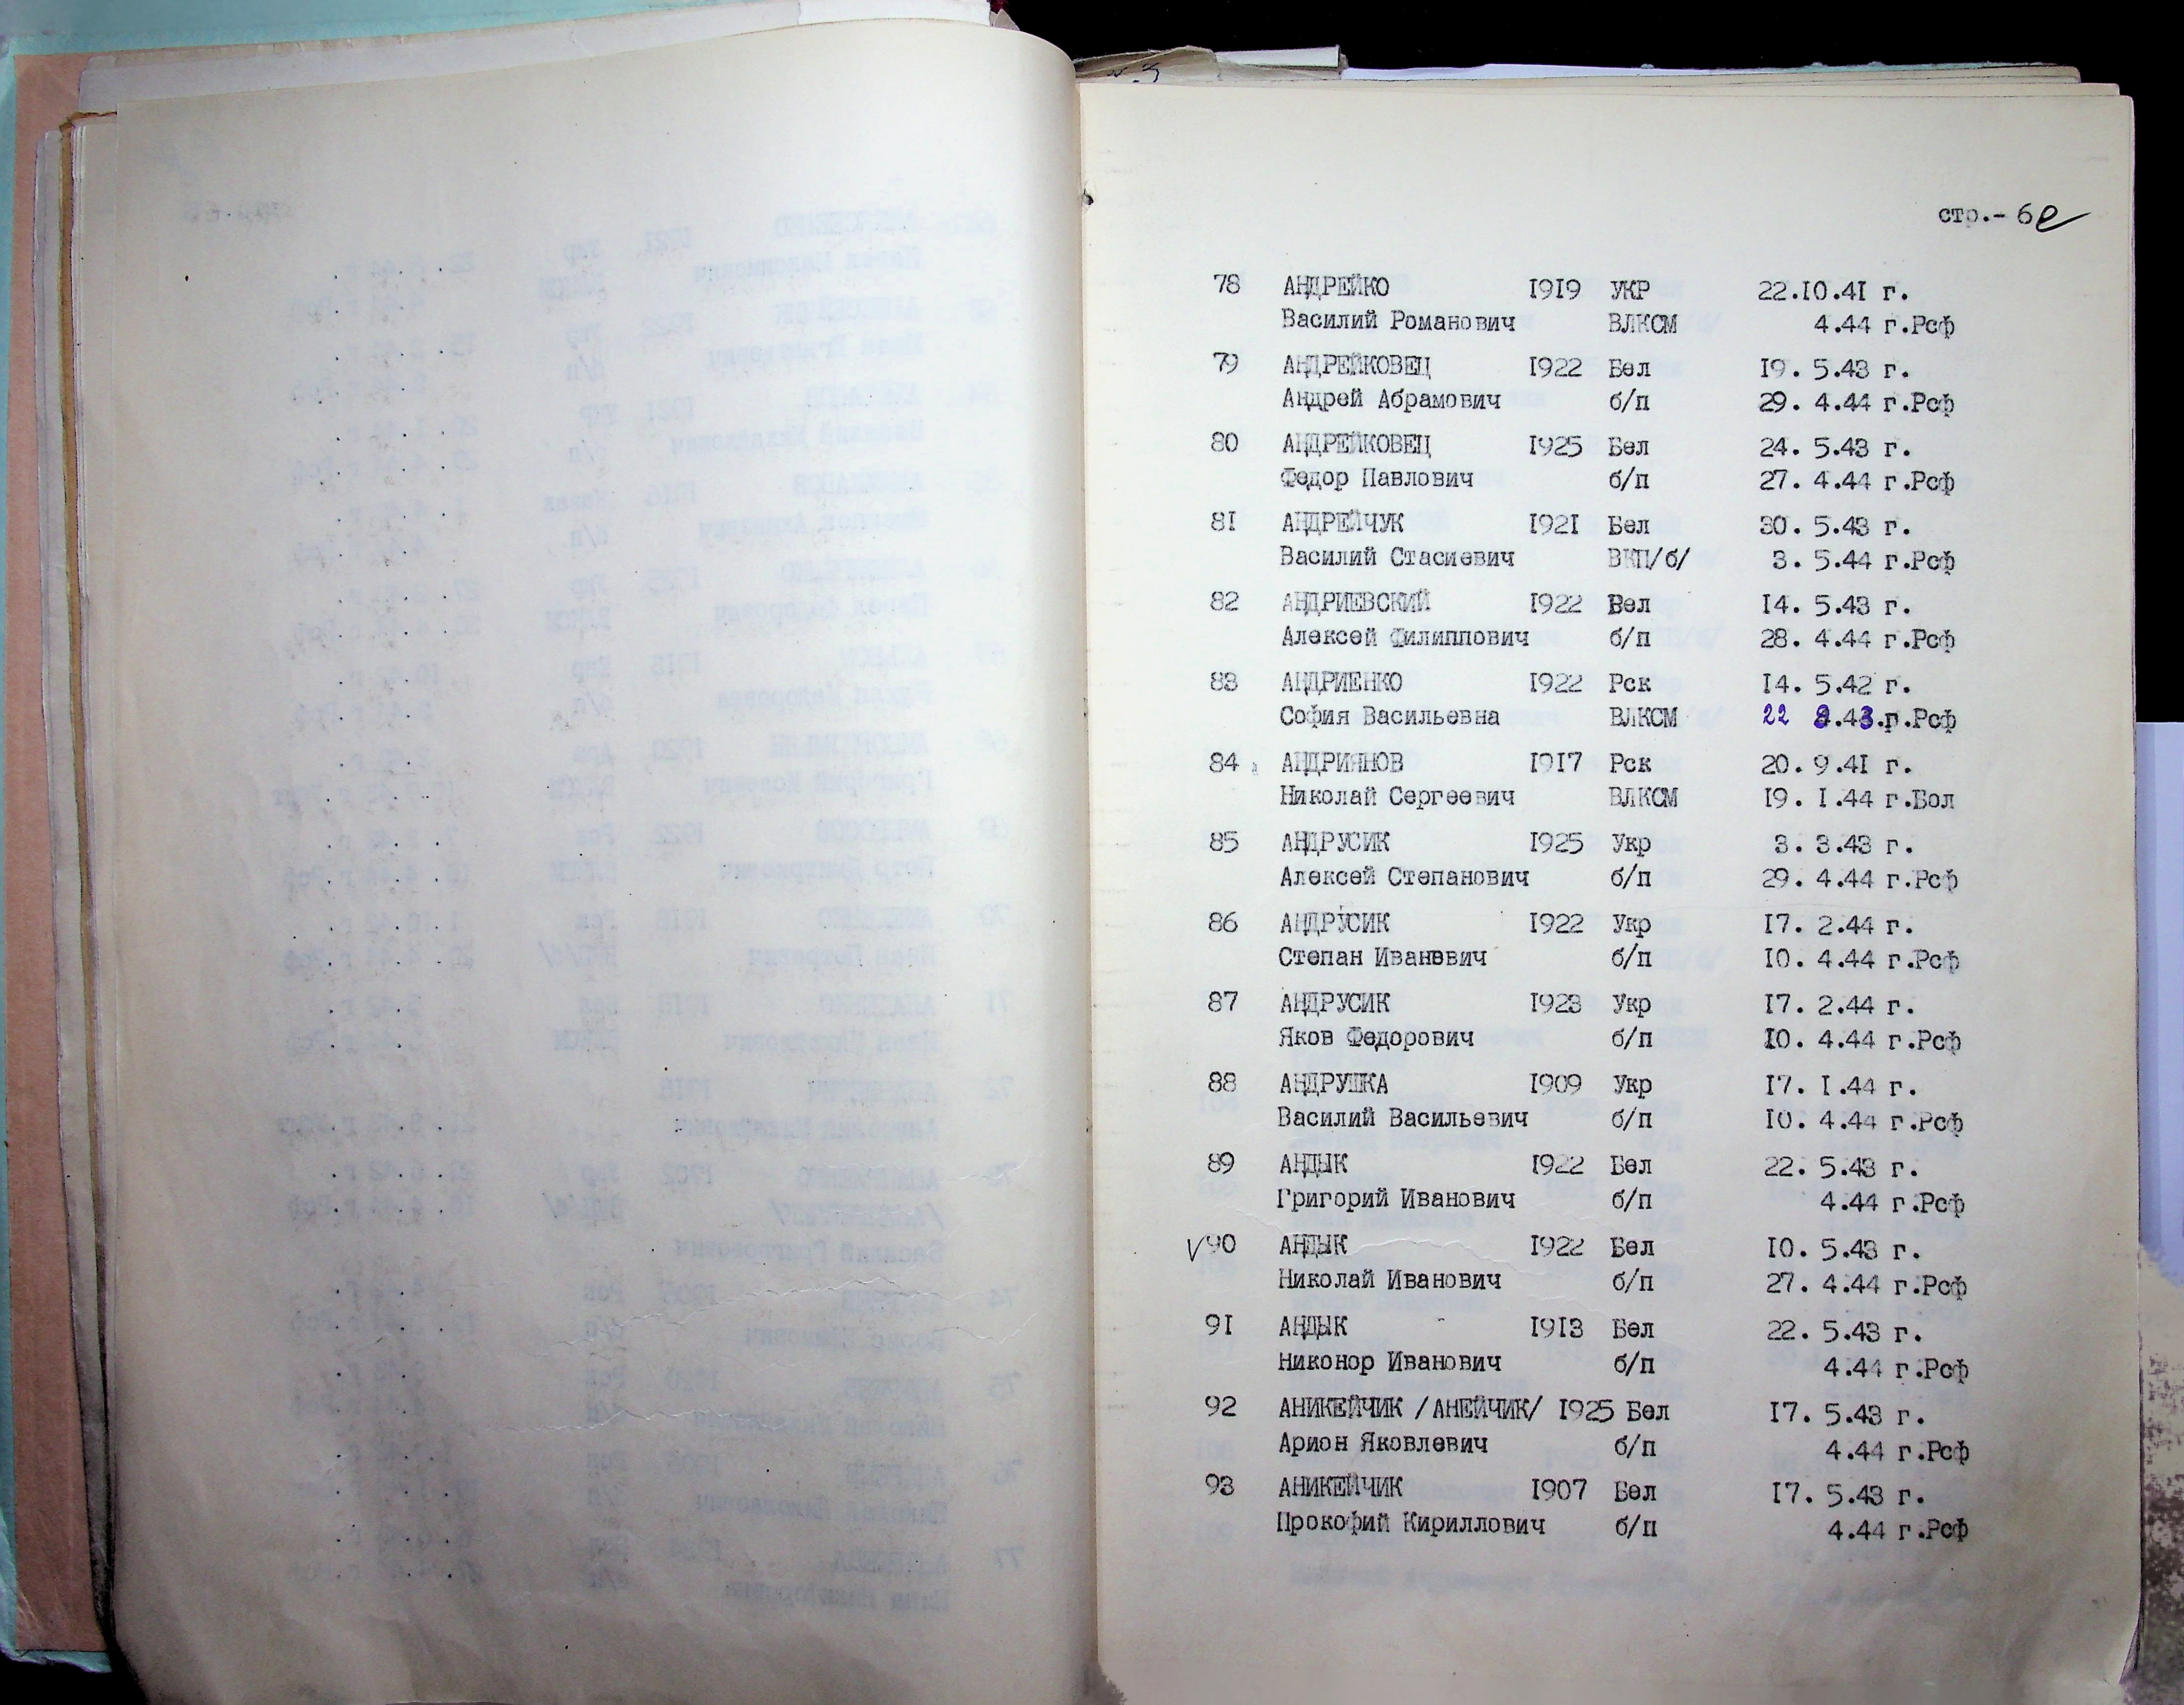 стр.- 6е
78 АНДРЕЙКО 1919 УКР 22.10.41 г.
Василий Романович ВЛКСМ 4.44 г.Рсф
79 АНДРЕЙКОВЕЦ 1922 Бел 19. 5.43 г.
Андрей Абрамович б/п 29. 4.44 г.Рсф
80 АНДРЕЙКОВЕЦ 1925 Бел 24. 5.43 г.
Федор Павлович б/п 27. 4.44 г.Рсф
81 АНДРЕЙЧУК 1921 Бел 30. 5.43 г.
Василий Стасиевич ВКП/б/ 3. 5.44 г.Рсф
82 АНДРИЕВСКИЙ 1922 Бел 14. 5.43 г.
Алексей Филиппович б/п 28. 4.44 г.Рсф
83 АНДРИЕНКО 1922 Рск 14. 5.42 г.
София Васильевна ВЛКСМ 22 .43.г.Рсф
84 АНДРИЯНОВ 1917 Рск 20. 9.41 г.
Николай Сергеевич ВЛКСМ 19. 1.44 г.Бол
85 АНДРУСИК 1925 Укр 3. 3.43 г.
Алексей Степанович б/п 29. 4.44 г.Рсф
86 АНДРУСИК 1922 Укр 17. 2.44 г.
Степан Иванович б/п 10. 4.44 г.Рсф
87 АНДРУСИК 1923 Укр 17. 2.44 г.
Яков Федорович б/п 10. 4.44 г.Рсф
88 АНДРУШКА 1909 Укр 17. 1.44 г.
Василий Васильевич б/п 10. 4.44 г.Рсф
89 АНДЫК 1922 Бел 22. 5.43 г.
Григорий Иванович б/п 4.44 г.Рсф
V90 АНДЫК 1922 Бел 10. 5.43 г.
Николай Иванович б/п 27. 4.44 г.Рсф
91 АНДЫК 1913 Бел 22. 5.43 г.
Никонор Иванович б/п 4.44 г.Рсф
92 АНИКЕЙЧИК /АНЕЙЧИК/ 1925 Бел 17. 5.43 г.
Арион Яковлевич б/п 4.44 г.Рсф
93 АНИКЕЙЧИК 1907 Бел 17. 5.43 г.
Прокофий Кириллович б/п 4.44 г.Рсф